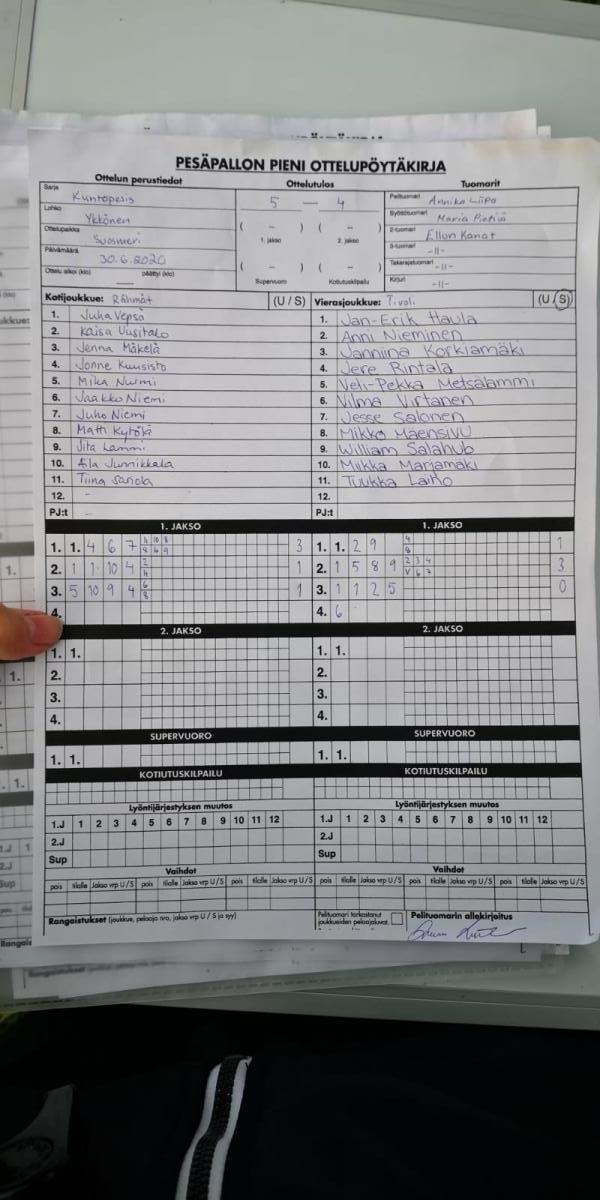 PESÄPALLON PIENI OTTELUPÖYTÄKIRJA
Ottelun perustiedot Ottelutulos Tuomarit
Sarja Kuntopesis 5 — 4 Pelituomari Annika Liipa
Lohko Ykkönen ( – ) ( – ) Syöttötuomari Maria
Ottelupaikka Suosmeri 1. jakso 2. jakso 2-tuomari Ellun Kanat
Päivämäärä 30.6.2020 ( – ) ( – ) 3-tuomari -11-
Takarajatuomari -11-
Ottelu alkoi (klo) päättyi (klo) Supervuoro Kotiutuskilpailu Kirjuri -11-
Kotijoukkue: Rähmät (U / S) Vierasjoukkue: Tivoli (U / S)
1. Juha Vepsä 1. Jan-Erik Haula
2. Kaisa Uusitalo 2. Anni Nieminen
3. Jenna Mäkelä 3. Janniina Korkiamäki
4. Jonne Kuusisto 4. Jere Rintala
5. Mika Nurmi 5. Veli-Pekka Metsälammi
6. Jaakko Niemi 6. Vilma Virtanen
7. Juho Niemi 7. Jesse Salonen
8. Matti Kytölä 8. Mikko Mäensivu
9. Jita Lammi 9. William Salahub
10. Aila Junnikkala 10. Miikka Marjamäki
11. Tiina Sariola 11. Tuukka Laiho
12. - 12.
PJ:t - PJ:t
1. JAKSO 1. JAKSO
1. 1. 4 6 7 4 10 8 3 1. 1. 2 9 4 1
8 6 9 8
2. 1 1 10 4 2 1 2. 1 5 8 9 2 3 4 3
4 V 6 7
3. 5 10 9 4 6 1 3. 1 1 2 5 0
8
4. 4. 6
2. JAKSO 2. JAKSO
1. 1. 1. 1.
2. 2.
3. 3.
4. 4.
SUPERVUORO SUPERVUORO
1. 1. 1. 1.
KOTIUTUSKILPAILU KOTIUTUSKILPAILU
Lyöntijärjestyksen muutos Lyöntijärjestyksen muutos
1.J 1 2 3 4 5 6 7 8 9 10 11 12 1.J 1 2 3 4 5 6 7 8 9 10 11 12
2.J 2.J
Sup Sup
Vaihdot Vaihdot
pois tilalle Jakso vrp U/S pois tilalle Jakso vrp U/S pois tilalle Jakso vrp U/S pois tilalle Jakso vrp U/S
Rangaistukset (joukkue, pelaaja nro, jakso vrp U / S ja syy) Pelituomari tarkastanut joukkueiden pelaajaluvat. Pelituomarin allekirjoitus